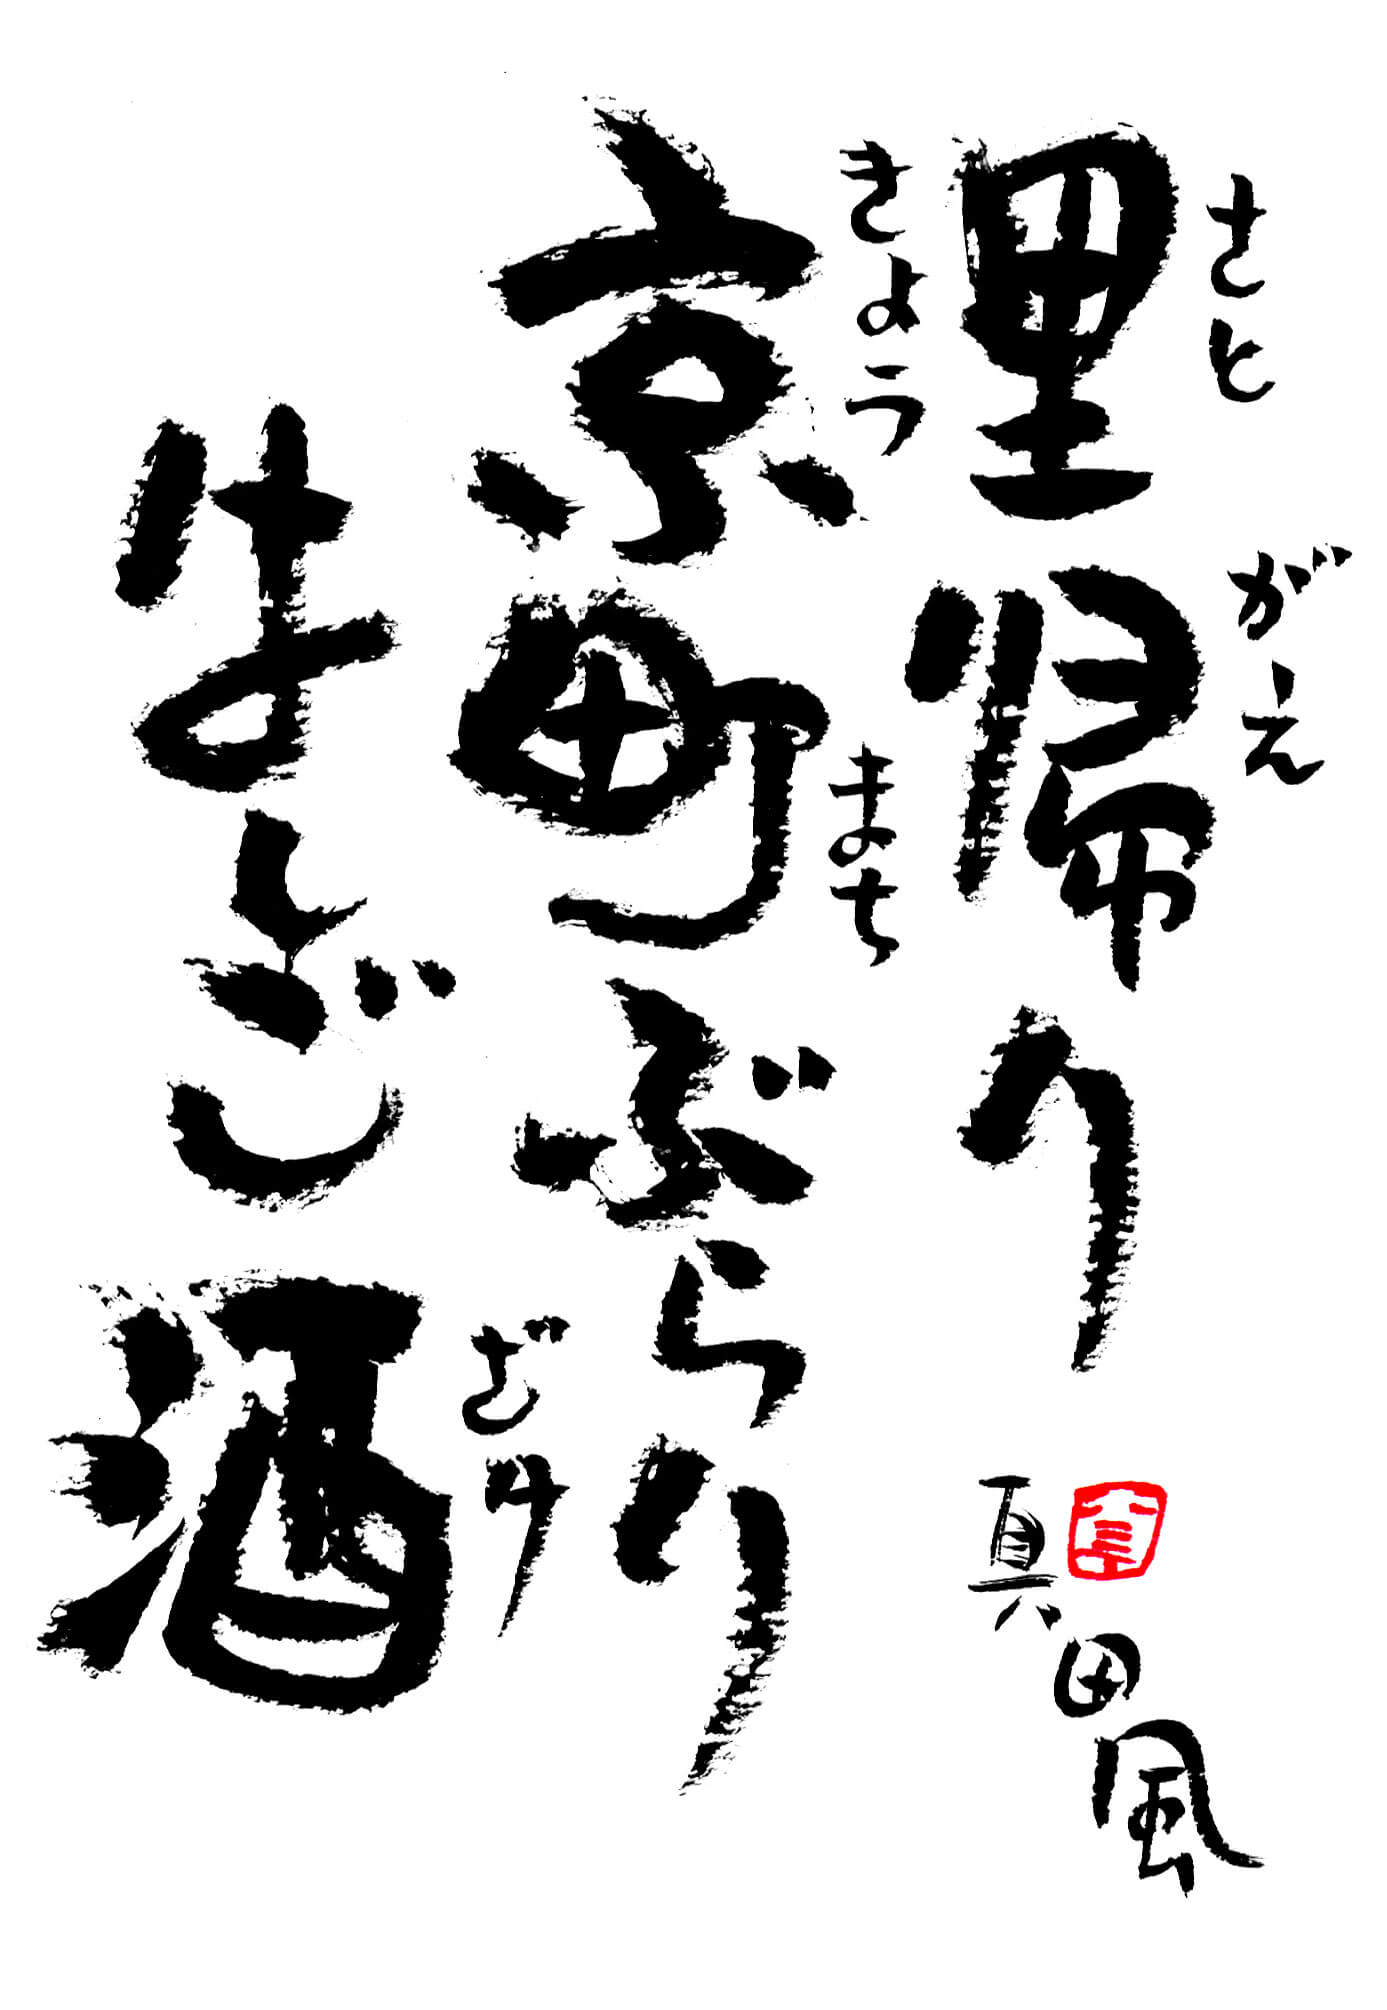 さとがえ
里帰り
きょうまち
京町ぶらり
ざけ
はしご酒
真田風